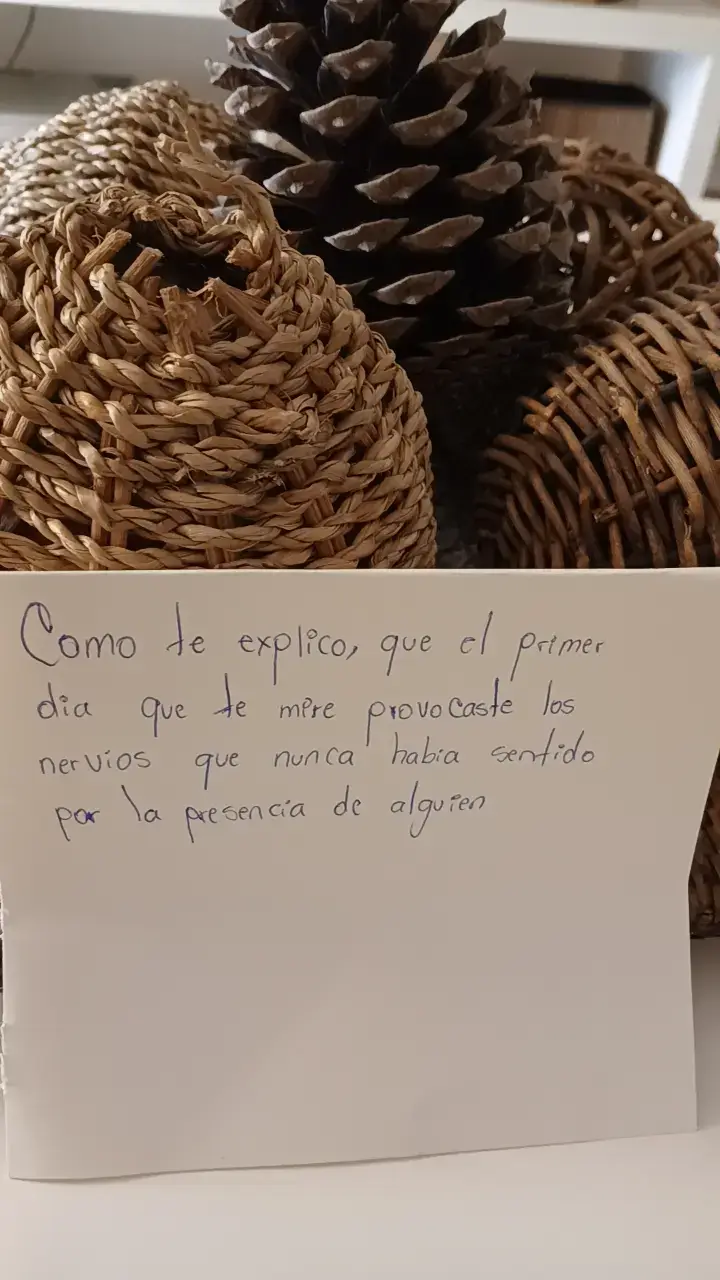 Como te explico, que el primer
dia que te mire provocaste los
nervios que nunca habia sentido
por la presencia de alguien